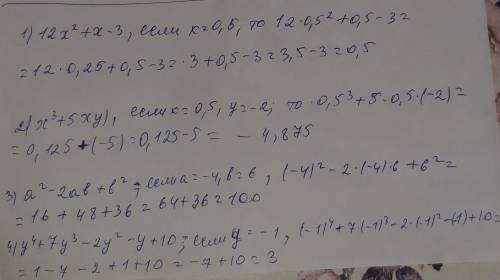 1) 12x² + x - 3, если x = 0,5, то 12 · 0,5² + 0,5 - 3 =
= 12 · 0,25 + 0,5 - 3 = 3 + 0,5 - 3 = 3,5 - 3 = 0,5
2) (x³ + 5xy), если x = 0,5, y = -2; то 0,5³ + 5 · 0,5 · (-2) =
= 0,125 + (-5) = 0,125 - 5 = - 4,875
3) a² - 2ab + b²; если a = -4, b = 6, (-4)² - 2 · (-4) · 6 + 6² =
= 16 + 48 + 36 = 64 + 36 = 100
4) y⁴ + 7y³ - 2y² - y + 10; если y = -1, (-1)⁴ + 7 · (-1)³ - 2 · (-1)² - (-1) + 10 =
= 1 - 7 - 2 + 1 + 10 = -7 + 10 = 3